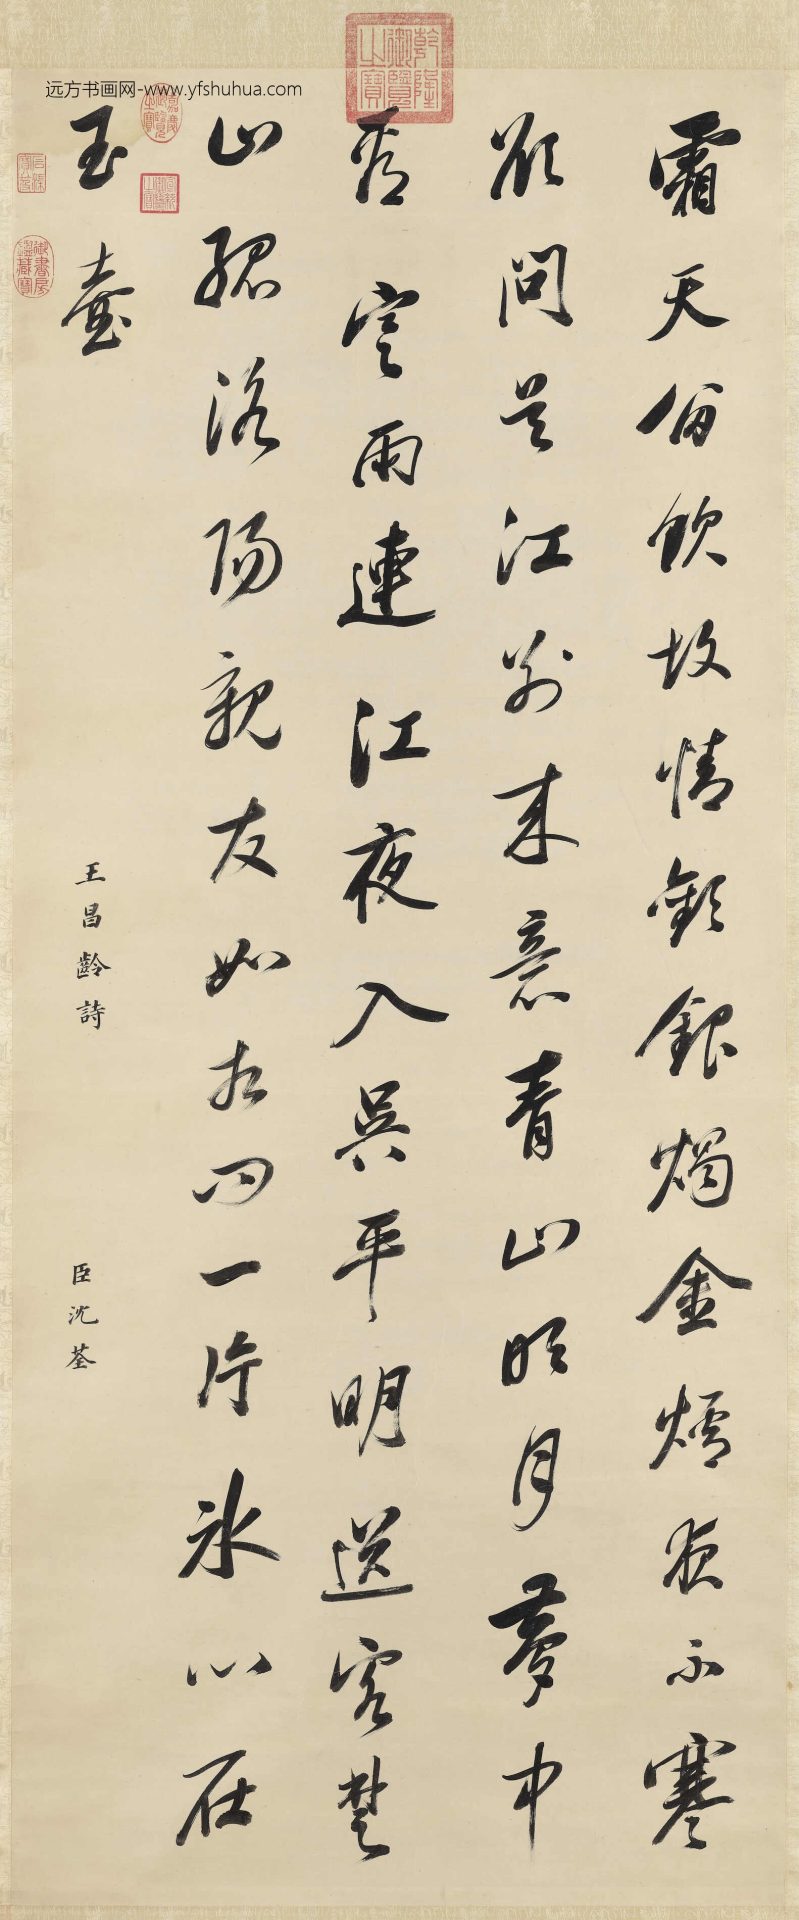 远方书画网-www.yfshuhua.com
乾隆御覽之寶
霜天留飲故情歡銀燭金爐夜不寒
欲問吳江別來意青山明月夢中
看寒雨連江夜入吳平明送客楚
山孤洛陽親友如相問一片冰心在
玉壺
王昌齡詩
臣沈荃
嘉慶御覽之寶
宣統御覽之寶
石渠寶笈
御書房鑑藏寶